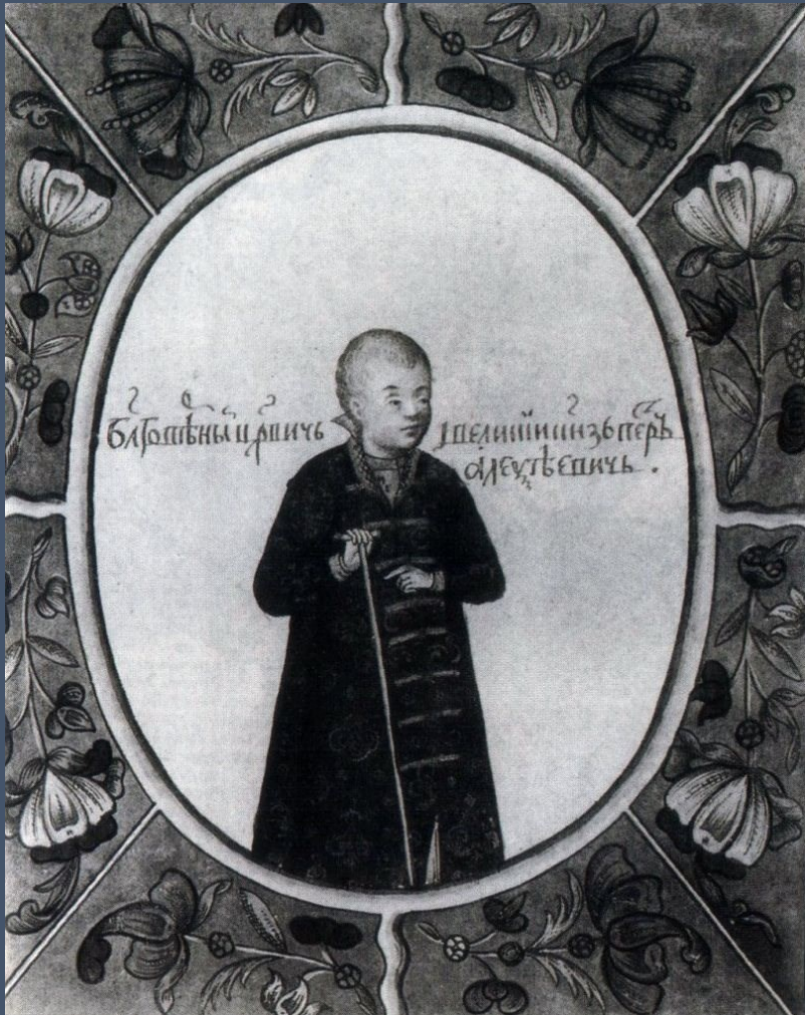 блговѣрный црвичь и великии кнзь петръ
алеѯѣевичь .